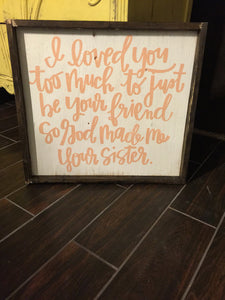 I loved you
too much to just
be your friend
So God made me
Your Sister.